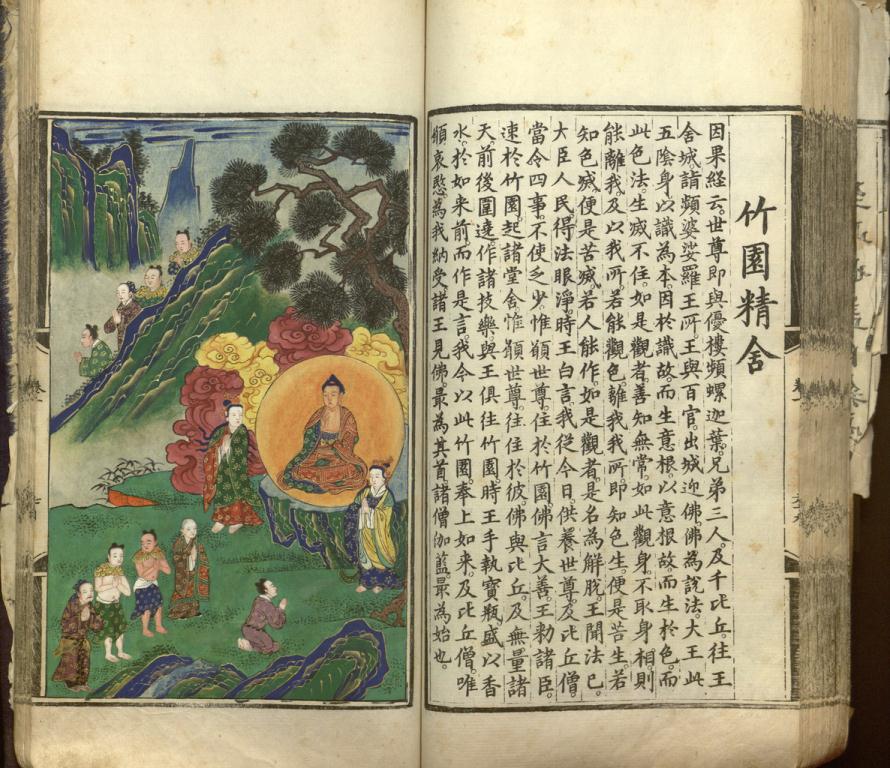 竹園精舍
因果經云。世尊即與優樓頻螺迦葉。兄弟三人。及千比丘。往王
舍城。詣頻婆娑羅王所。王與百官。出城迎佛。佛為說法。大王此
五陰身。以識為本。因於識故。而生意根。以意根故。而生於色。而
此色法。生滅不住。如是觀者。善知無常。如此觀身。不取身相。則
能離我。及以我所。若能觀色。離我我所。即知色生。便是苦生。若
知色滅。便是苦滅。若人能作。如是觀者。是名為解脫。王聞法已。
大臣人民。得法眼淨。時王白言。我從今日。供養世尊。及比丘僧
當令四事。不使乏少。惟願世尊。住於竹園。佛言大善。王勅諸臣。
速於竹園。起諸堂舍。惟願世尊。往住於彼。佛與比丘。及無量諸
天。前後圍遶。作諸技樂。與王俱往竹園。時王手執寶瓶。盛以香
水。於如来前。而作是言。我今以此竹園。奉上如来。及比丘僧。唯
願哀愍。為我納受。諸王見佛。最為其首。諸僧伽藍。最為始也。